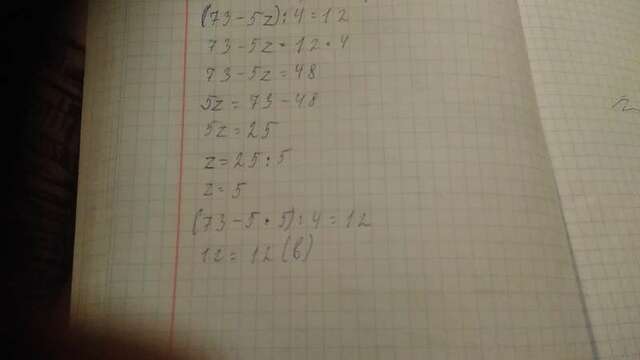 (73-5z):4=12
73-5z=12•4
73-5z=48
5z=73-48
5z=25
z=25:5
z=5
(73-5•5):4=12
12=12(в)